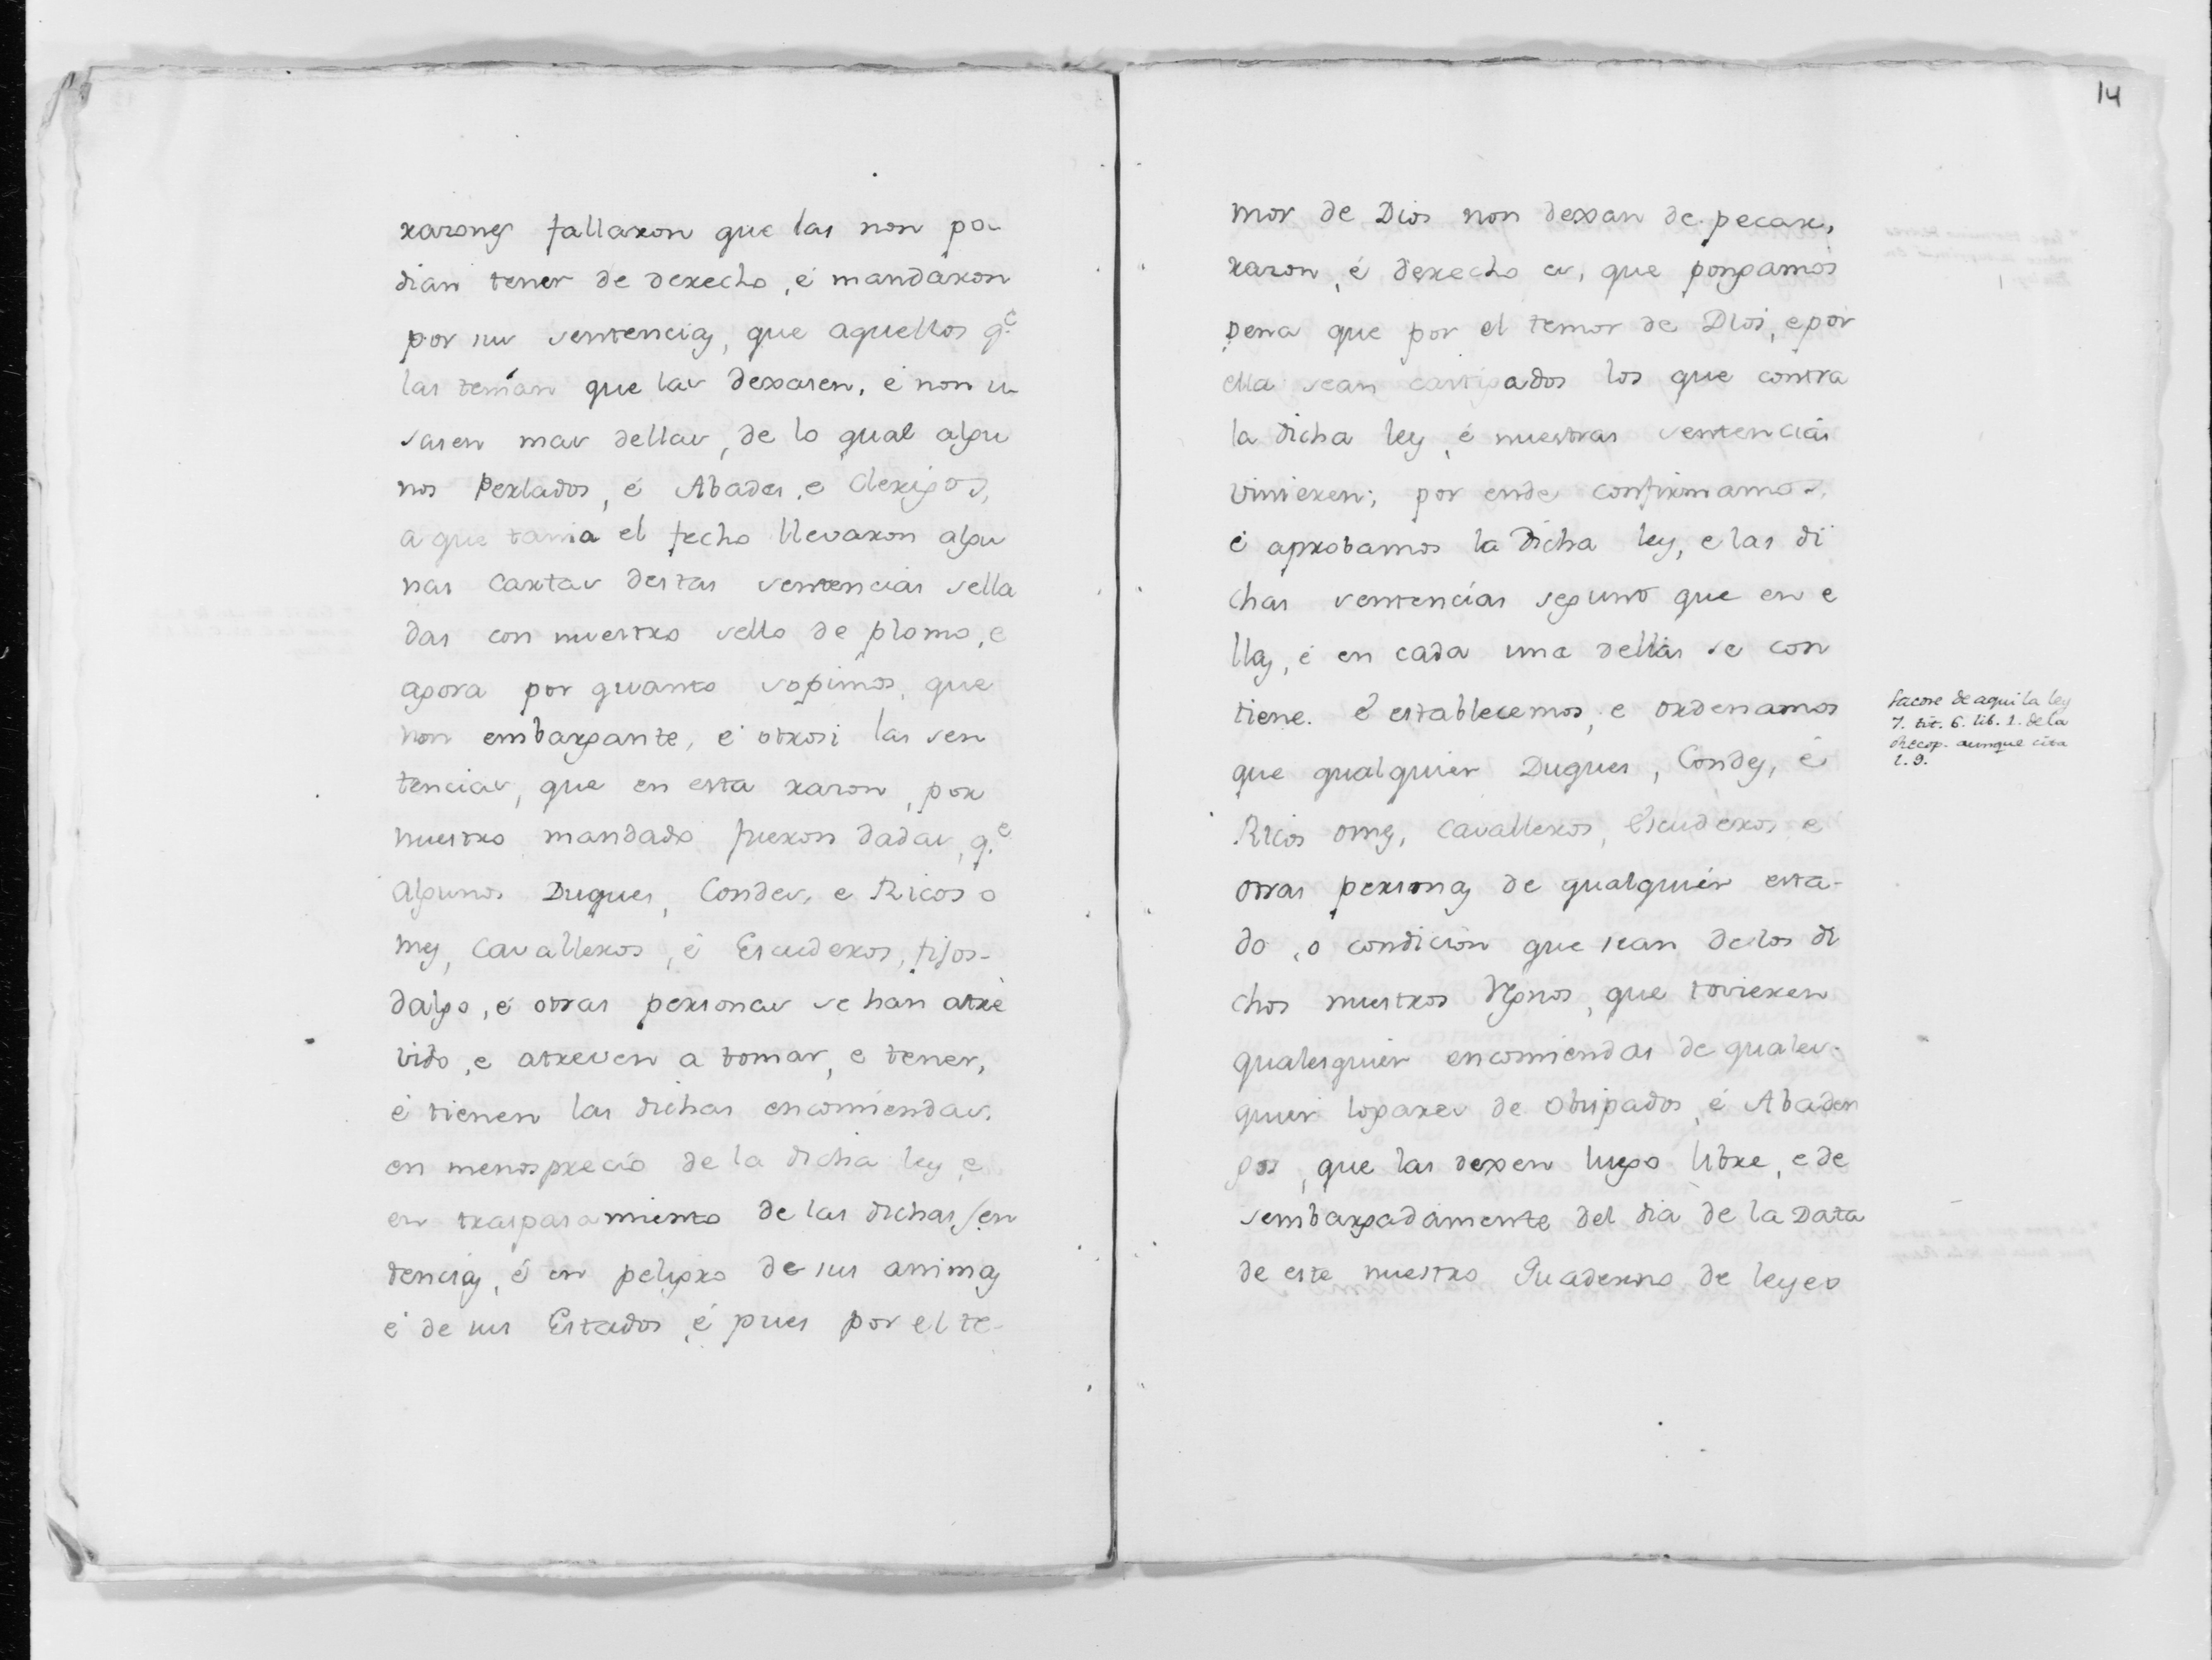 razones fallaron que las non po-
dian tener de derecho, é mandaron
por sus sentencias, que aquellos q.e
las tenian que las dexasen, é non u-
sasen mas dellas, de lo qual algu
nos Perlados, é Abades, e Clerigos,
a que tania el fecho llevaron algu
nas Cartas destas sentencias sella
das con nuestro sello de plomo, e
agora por quanto sopimos, que
non embargante, e otrosi las sen
tencias, que en esta razon, por
nuestro mandado fueron dadas, q.e
algunos Duques, Condes, e Ricos o
mes, Cavalleros, é Escuderos, fijos-
dalgo, é otras personas se han atre
vido, e atreven a tomar, e tener,
é tienen las dichas encomiendas,
en menosprecio de la dicha ley, e
en traspasamiento de las dichas sen
tencias, é en peligro de sus animas
é de sus Estados, é pues por el te-
14
mor de Dios non dexan de pecar,
razon, é derecho es, que pongamos
pena que por el temor de Dios, e por
ella sean castigados los que contra
la dicha ley, é nuestras sentencias
vinieren; por ende confirmamos,
é aprobamos la Dicha ley, e las di
chas sentencias segund que en e
llas, é en cada una dellas se con
tiene. É establecemos, e ordenamos
que qualquier Duques, Condes, é
Ricos omes, Cavalleros, Escuderos, e
otras personas de qualquier esta-
do, o condicion que sean de los di
chos nuestros Rgnos, que tovieren
qualesquier encomiendas de quales-
quier logares de Obispados, é Abaden
gos, que las dexen luego libre, e de
sembargadamente del dia de la Data
de este nuestro Quaderno de leyes
Sacose de aqui la ley
7. tit. 6. lib. 1. de la
Recop. aunque cita
l. 9.